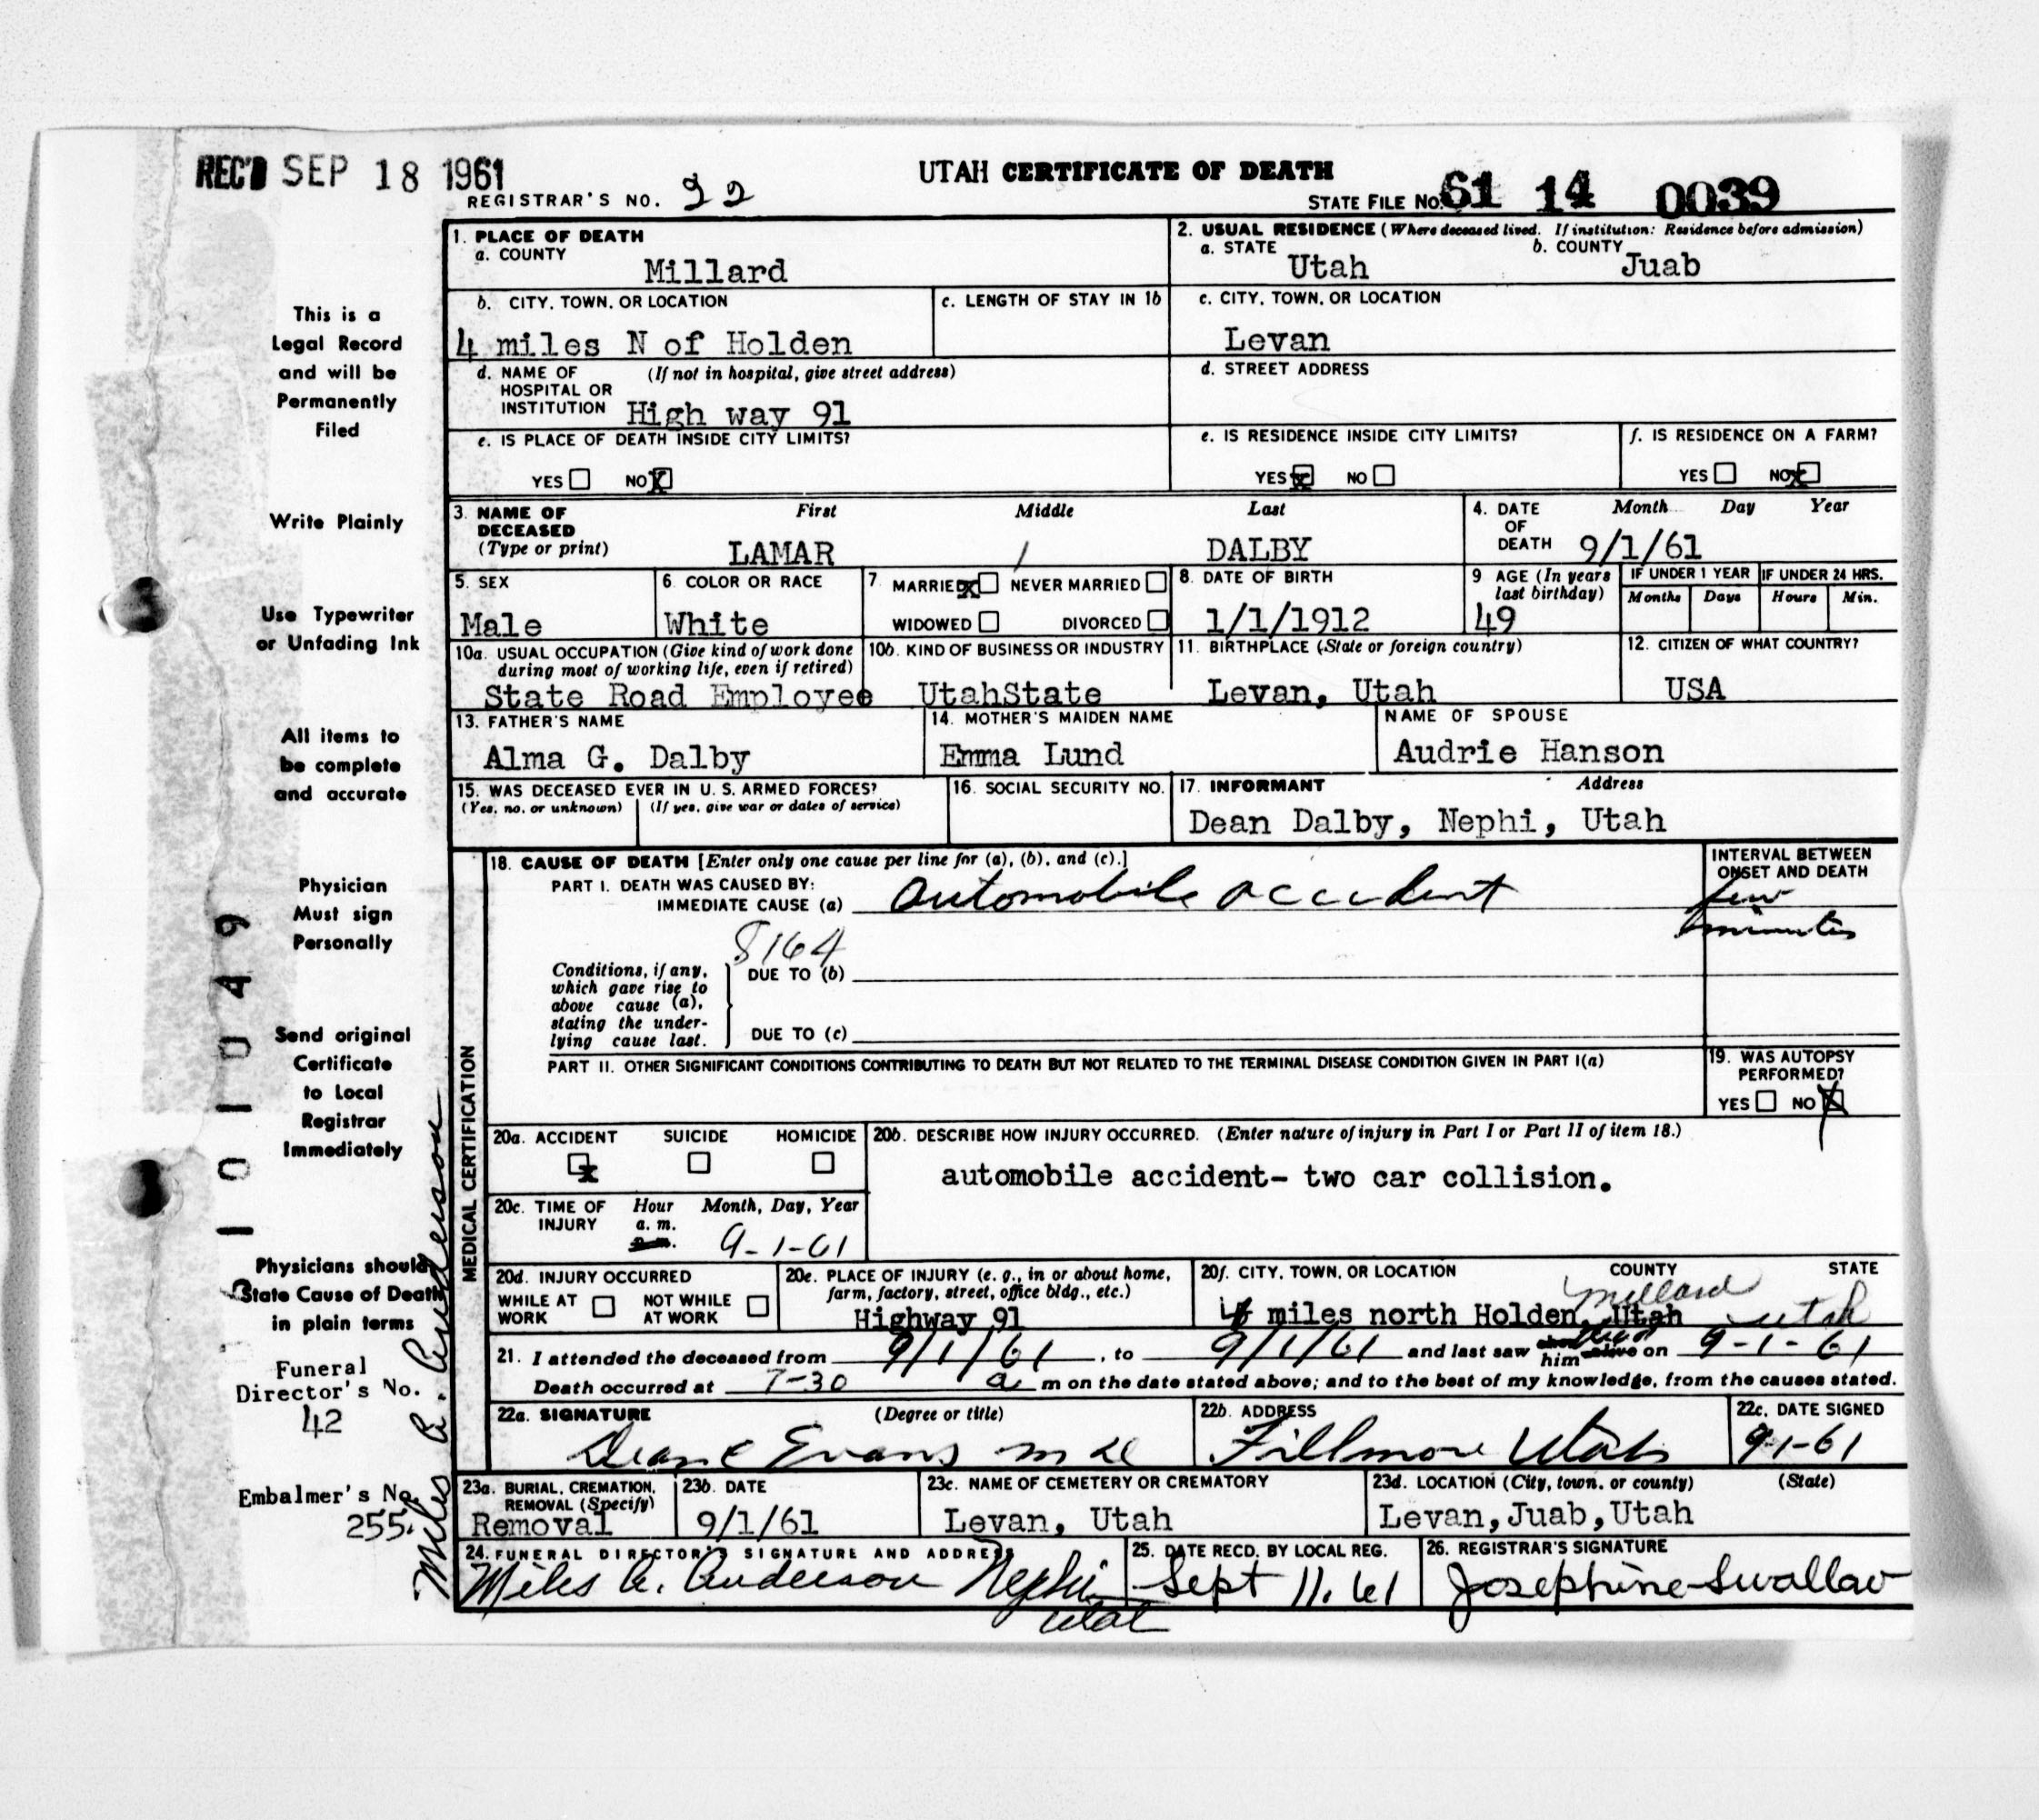 REC'D SEP 18 1961
UTAH CERTIFICATE OF DEATH
REGISTRAR'S NO. 22
STATE FILE NO. 61 14 0039
1. PLACE OF DEATH
a. COUNTY
Millard
2. USUAL RESIDENCE (Where deceased lived. If institution: Residence before admission)
a. STATE b. COUNTY
Utah Juab
b. CITY, TOWN, OR LOCATION
4 miles N of Holden
c. LENGTH OF STAY IN 1b
c. CITY, TOWN, OR LOCATION
Levan
d. NAME OF (If not in hospital, give street address)
HOSPITAL OR
INSTITUTION High way 91
d. STREET ADDRESS
e. IS PLACE OF DEATH INSIDE CITY LIMITS?
YES NO X
e. IS RESIDENCE INSIDE CITY LIMITS?
YES X NO
f. IS RESIDENCE ON A FARM?
YES NO X
3. NAME OF First Middle Last
DECEASED
(Type or print) LAMAR / DALBY
4. DATE Month Day Year
OF
DEATH 9/1/61
5. SEX
Male
6. COLOR OR RACE
White
7. MARRIED X NEVER MARRIED
WIDOWED DIVORCED
8. DATE OF BIRTH
1/1/1912
9 AGE (In years
last birthday)
49
IF UNDER 1 YEAR
Months Days
IF UNDER 24 HRS.
Hours Min.
10a. USUAL OCCUPATION (Give kind of work done
during most of working life, even if retired)
State Road Employee
10b. KIND OF BUSINESS OR INDUSTRY
UtahState
11. BIRTHPLACE (State or foreign country)
Levan, Utah
12. CITIZEN OF WHAT COUNTRY?
USA
13. FATHER'S NAME
Alma G. Dalby
14. MOTHER'S MAIDEN NAME
Emma Lund
NAME OF SPOUSE
Audrie Hanson
15. WAS DECEASED EVER IN U. S. ARMED FORCES?
(Yes, no, or unknown) (If yes, give war or dates of service)
16. SOCIAL SECURITY NO.
17. INFORMANT Address
Dean Dalby, Nephi, Utah
MEDICAL CERTIFICATION
18. CAUSE OF DEATH [Enter only one cause per line for (a), (b), and (c).]
PART I. DEATH WAS CAUSED BY:
IMMEDIATE CAUSE (a) automobile accident
INTERVAL BETWEEN
ONSET AND DEATH
few
minutes
8164
Conditions, if any,
which gave rise to
above cause (a),
stating the under-
lying cause last.
DUE TO (b)
DUE TO (c)
PART II. OTHER SIGNIFICANT CONDITIONS CONTRIBUTING TO DEATH BUT NOT RELATED TO THE TERMINAL DISEASE CONDITION GIVEN IN PART I(a)
19. WAS AUTOPSY
PERFORMED?
YES NO X
20a. ACCIDENT SUICIDE HOMICIDE
X
20b. DESCRIBE HOW INJURY OCCURRED. (Enter nature of injury in Part I or Part II of item 18.)
automobile accident- two car collision.
20c. TIME OF Hour Month, Day, Year
INJURY a. m.
p. m. 9-1-61
20d. INJURY OCCURRED
WHILE AT NOT WHILE
WORK AT WORK
20e. PLACE OF INJURY (e. g., in or about home,
farm, factory, street, office bldg., etc.)
Highway 91
20f. CITY, TOWN, OR LOCATION COUNTY STATE
4 miles north Holden, Utah Millard Utah
21. I attended the deceased from 9/1/61, to 9/1/61 and last saw him alive on 9-1-61
Death occurred at 7-30 a m on the date stated above; and to the best of my knowledge, from the causes stated.
22a. SIGNATURE (Degree or title)
Deane Evans MD
22b. ADDRESS
Fillmore Utah
22c. DATE SIGNED
9-1-61
23a. BURIAL, CREMATION,
REMOVAL (Specify)
Removal
23b. DATE
9/1/61
23c. NAME OF CEMETERY OR CREMATORY
Levan, Utah
23d. LOCATION (City, town, or county) (State)
Levan, Juab, Utah
24. FUNERAL DIRECTOR'S SIGNATURE AND ADDRESS
Miles A. Anderson Nephi
Utah
25. DATE RECD. BY LOCAL REG.
Sept 11. 61
26. REGISTRAR'S SIGNATURE
Josephine Swallow
This is a
Legal Record
and will be
Permanently
Filed
Write Plainly
Use Typewriter
or Unfading Ink
All items to
be complete
and accurate
Physician
Must sign
Personally
Send original
Certificate
to Local
Registrar
Immediately
Physicians should
State Cause of Death
in plain terms
Funeral
Director's No.
42
Embalmer's No.
255
Miles A. Anderson
101049